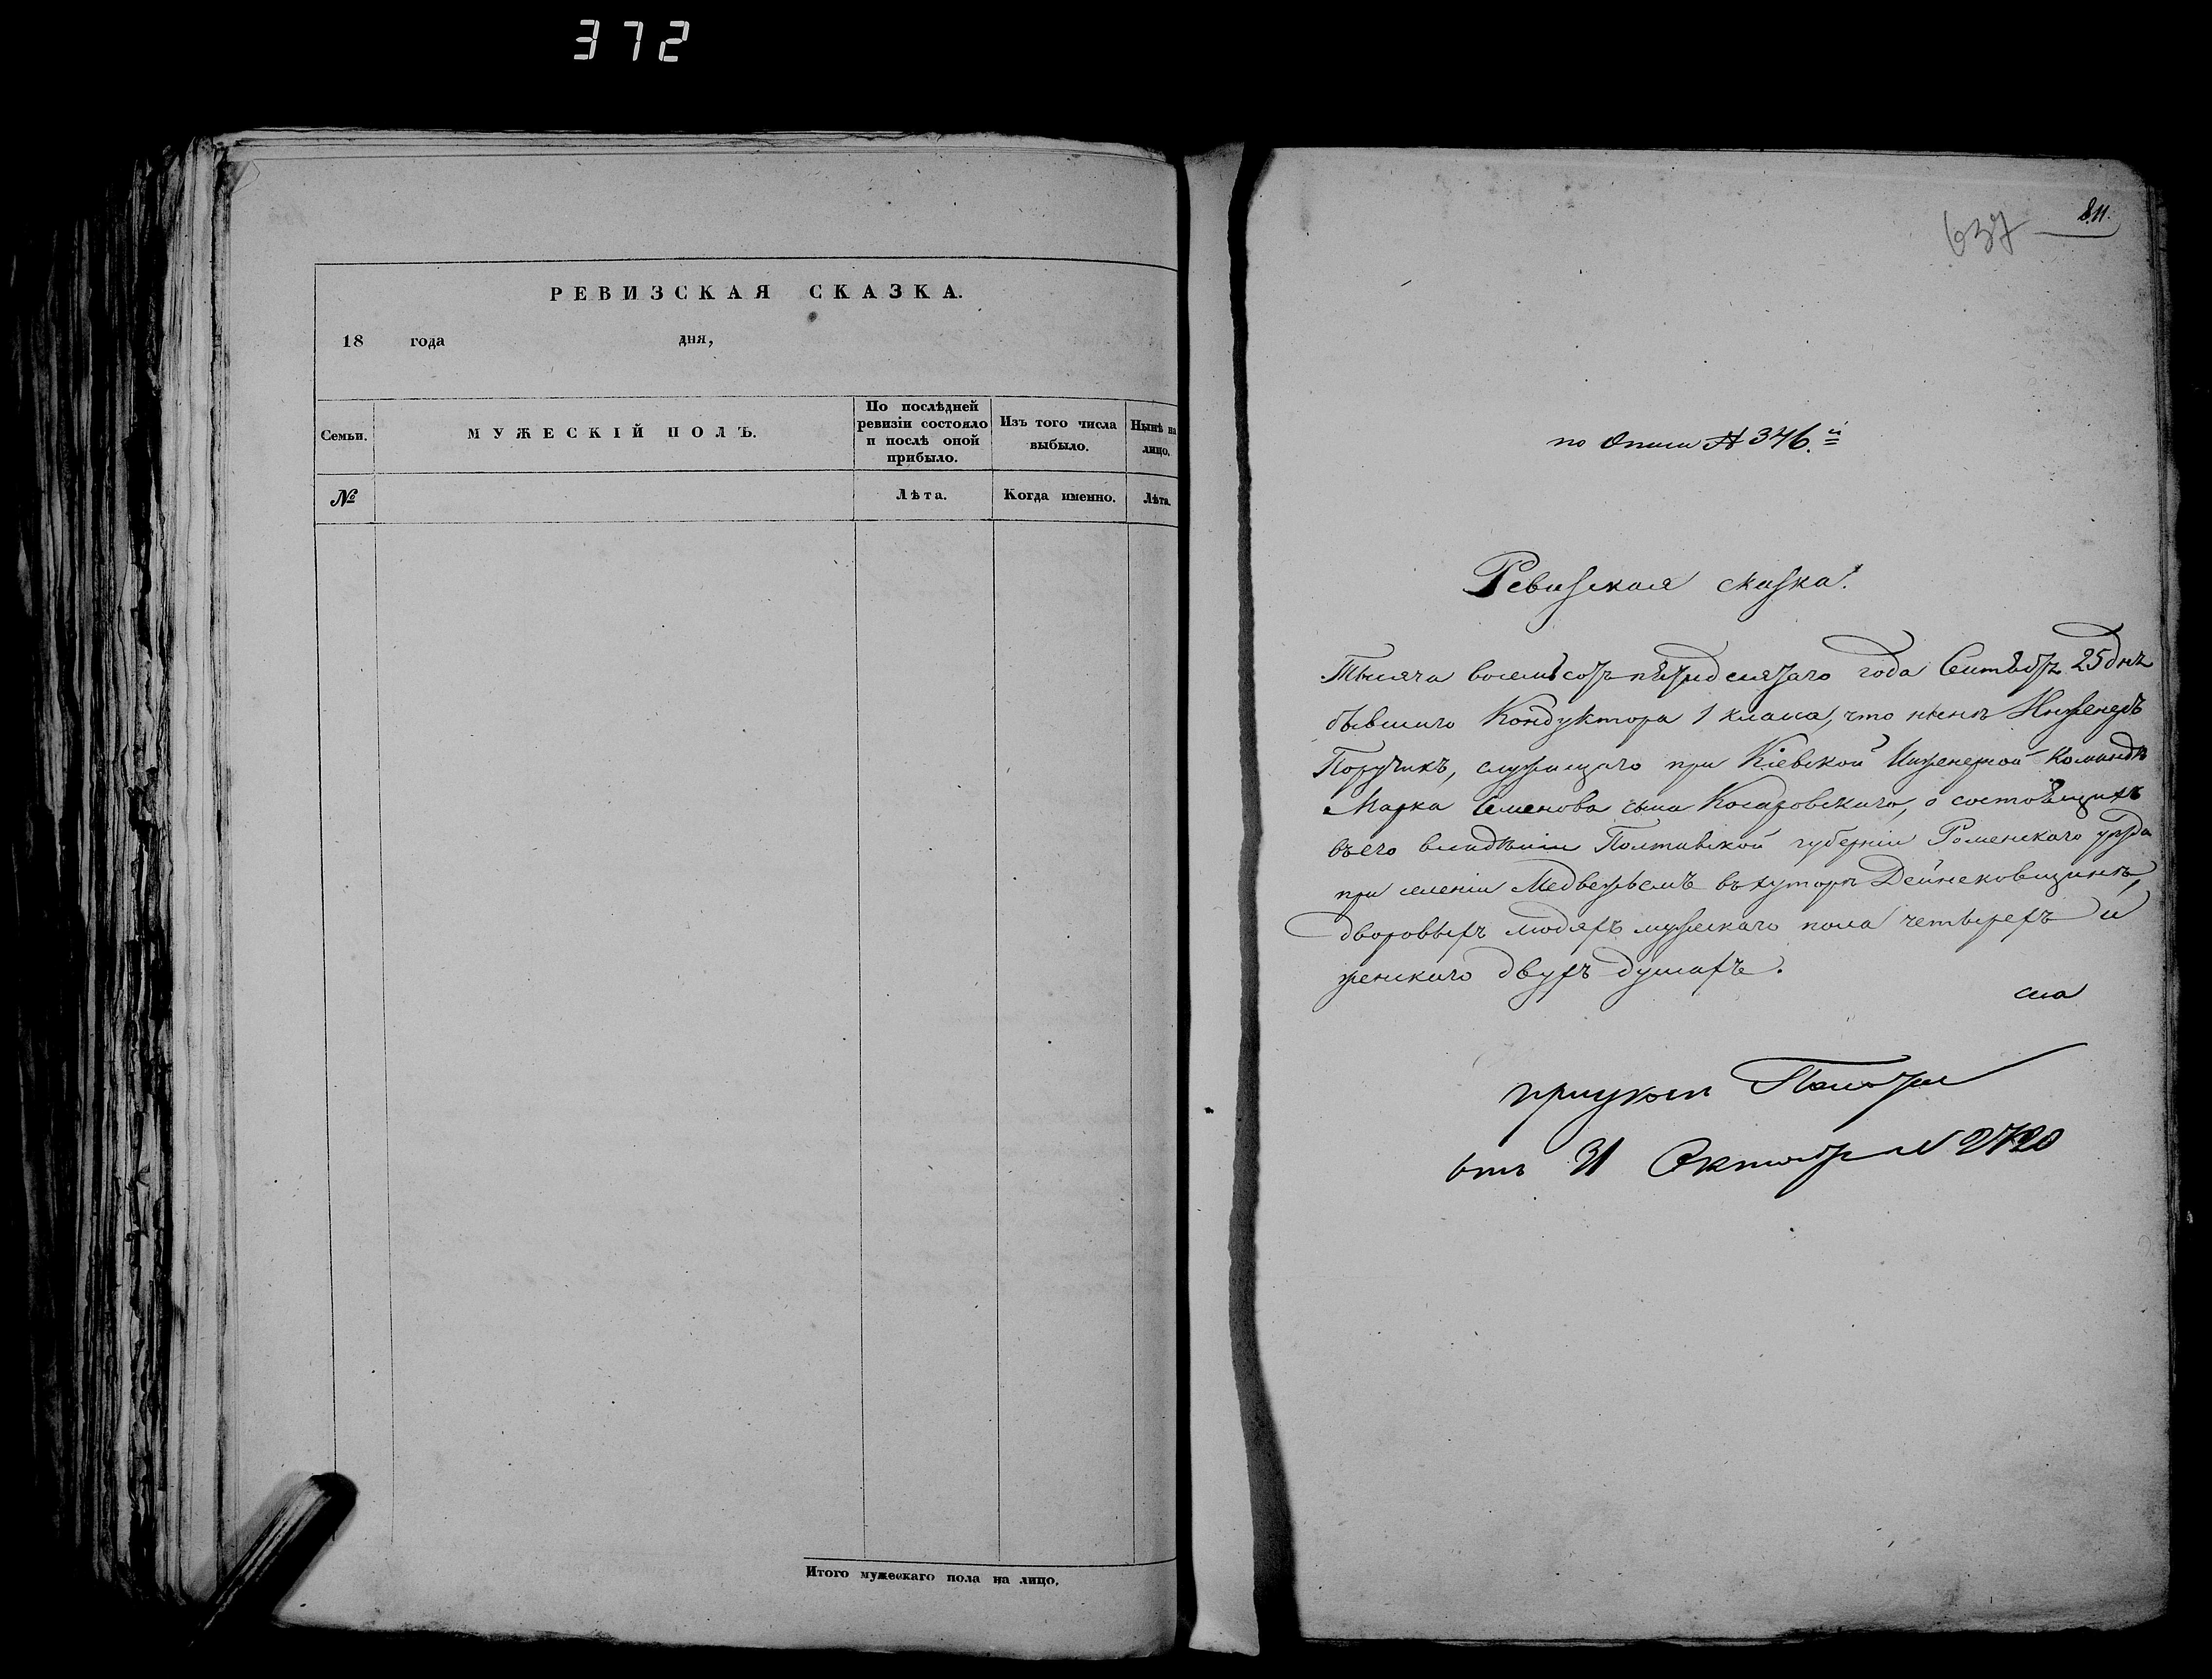 372
РЕВИЗСКАЯ СКАЗКА.
18 года дня,
Семьи.
МУЖЕСКІЙ ПОЛЪ.
По послѣдней
ревизіи состояло
и послѣ оной
прибыло.
Изъ того числа
выбыло.
Нынѣ на
лицо.
№
Лѣта.
Когда именно.
Лѣта.
Итого мужескаго пола на лицо.
637
811.
по Описи № 346.й
Ревизская сказка.
Тысяча восемьсотъ пятидесятаго года Сентября 25 дня
бывшаго Кондуктора 1 класа, что нынѣ Инженеръ
Поручикъ, служащаго при Кіевской Инженерной Командѣ
Марка Семенова сына Косаровскаго, о состоящихъ
въ его владѣніи Полтавской губерніи Роменскаго уѣзда
при селеніи Медвежьемъ въ хуторѣ Дейнековщинѣ,
дворовыхъ людяхъ мужескаго пола четырехъ и
женскаго двухъ душахъ.
отъ 31 Октября № 2720